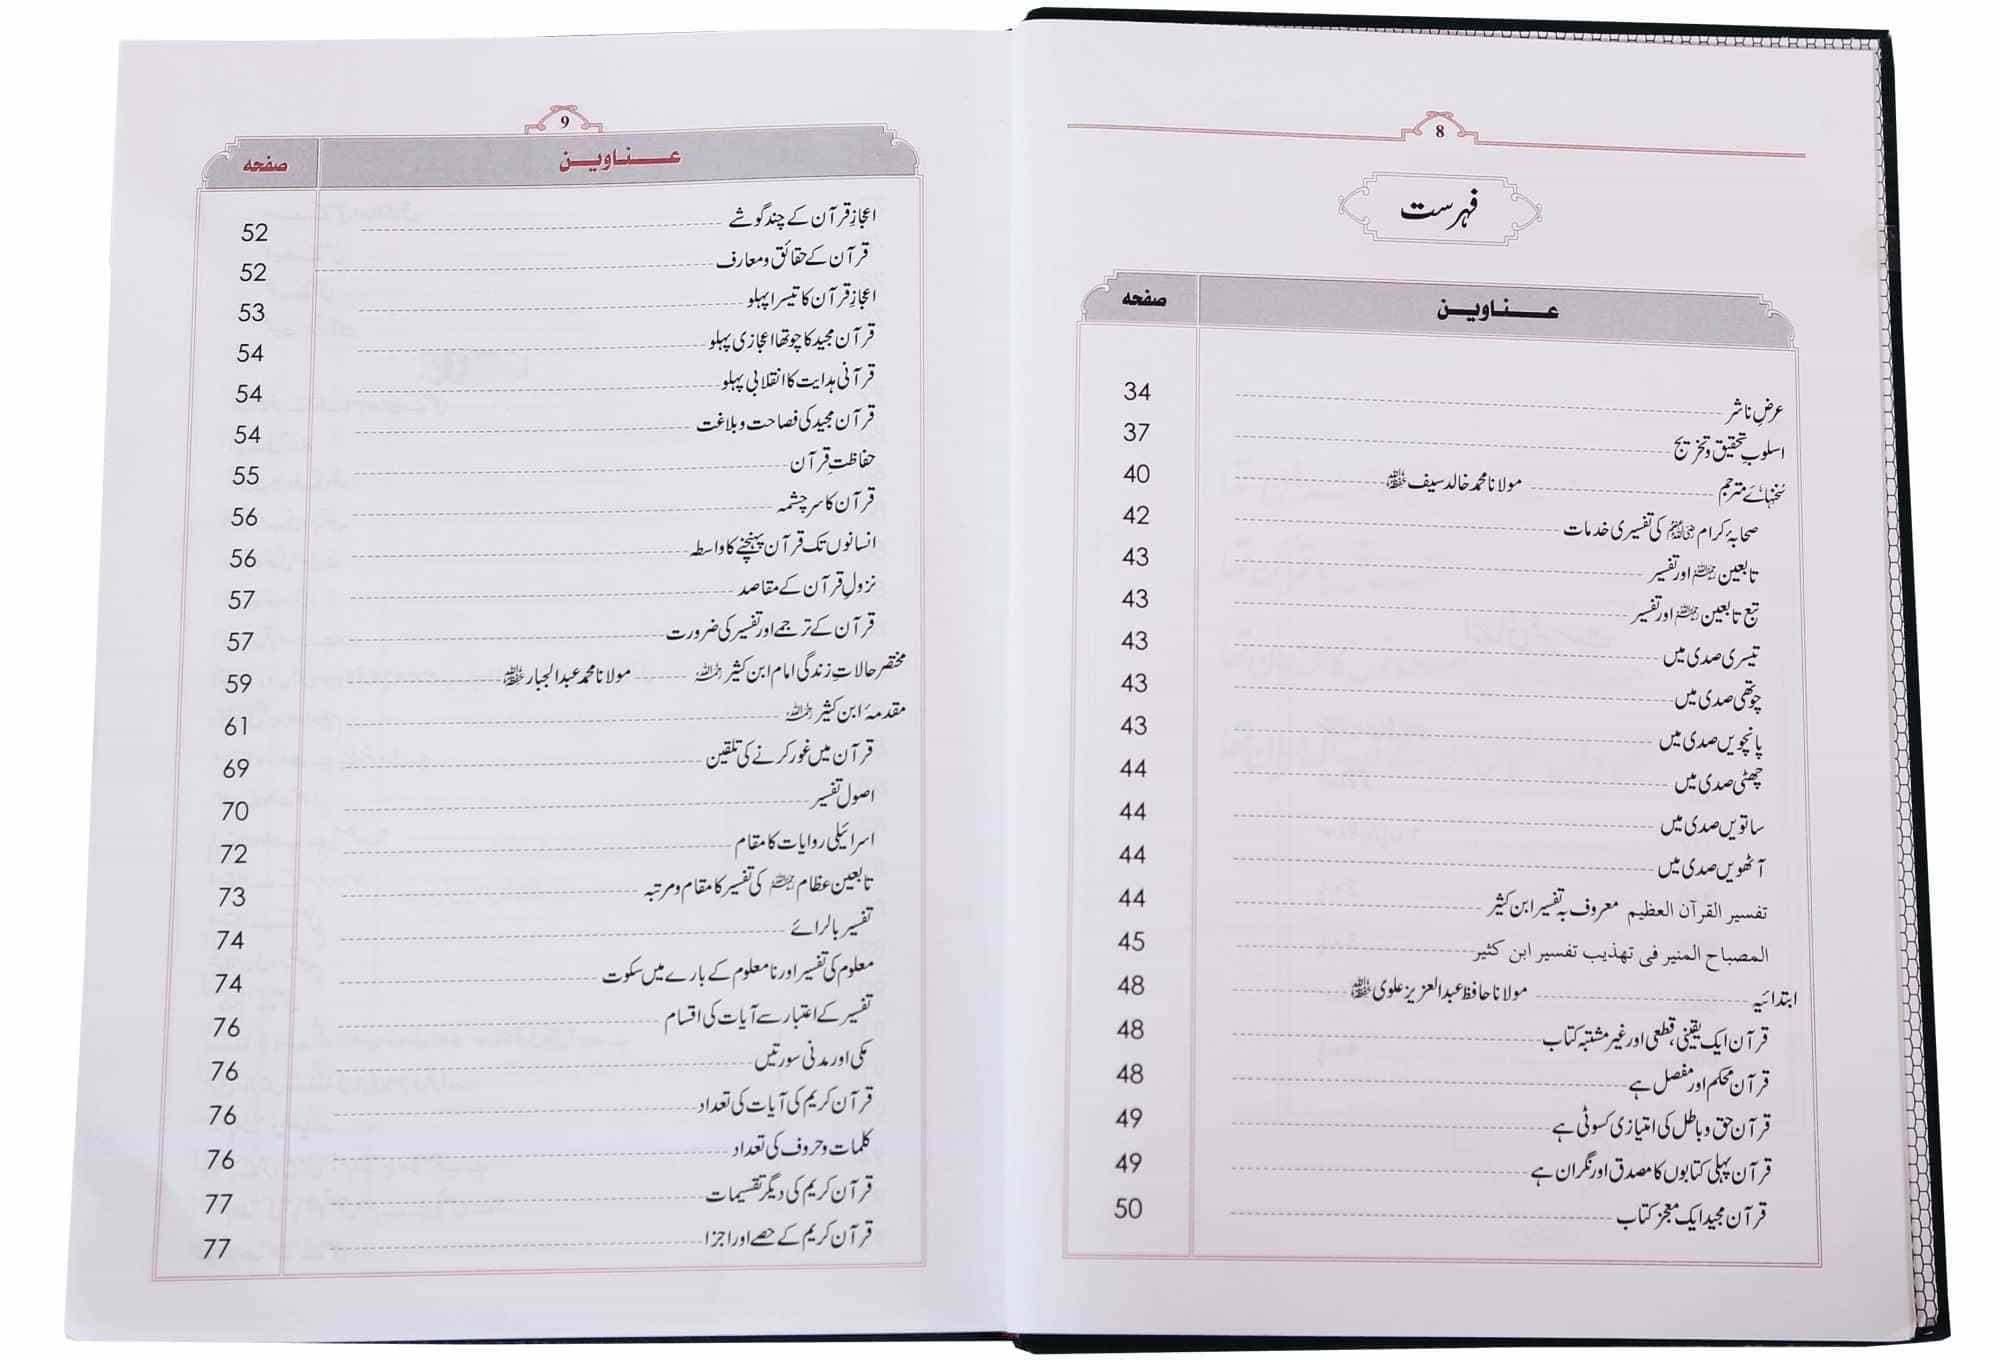 8
فہرست
عناوین صفحہ
عرضِ ناشر 34
اسلوبِ تحقیق و تخریج 37
سخنہائے مترجم مولانا محمد خالد سیف حفظہ اللہ 40
صحابۂ کرام رضی اللہ عنہم کی تفسیری خدمات 42
تابعین رحمہم اللہ اور تفسیر 43
تبع تابعین رحمہم اللہ اور تفسیر 43
تیسری صدی میں 43
چوتھی صدی میں 43
پانچویں صدی میں 43
چھٹی صدی میں 44
ساتویں صدی میں 44
آٹھویں صدی میں 44
تفسير القرآن العظيم معروف بہ تفسیر ابن کثیر 44
المصباح المنير فی تهذيب تفسير ابن كثير 45
ابتدائیہ مولانا حافظ عبدالعزیز علوی حفظہ اللہ 48
قرآن ایک یقینی، قطعی اور غیر مشتبہ کتاب 48
قرآن محکم اور مفصل ہے 48
قرآن حق و باطل کی امتیازی کسوٹی ہے 49
قرآن پہلی کتابوں کا مصدق اور نگران ہے 49
قرآن مجید ایک معجز کتاب 50
9
عناوین صفحہ
اعجازِ قرآن کے چند گوشے 52
قرآن کے حقائق و معارف 52
اعجازِ قرآن کا تیسرا پہلو 53
قرآن مجید کا چوتھا اعجازی پہلو 54
قرآنی ہدایت کا انقلابی پہلو 54
قرآن مجید کی فصاحت و بلاغت 54
حفاظتِ قرآن 55
قرآن کا سرچشمہ 56
انسانوں تک قرآن پہنچنے کا واسطہ 56
نزولِ قرآن کے مقاصد 57
قرآن کے ترجمے اور تفسیر کی ضرورت 57
مختصر حالاتِ زندگی امام ابن کثیر رحمہ اللہ مولانا محمد عبدالجبار حفظہ اللہ 59
مقدمۂ ابن کثیر رحمہ اللہ 61
قرآن میں غور کرنے کی تلقین 69
اصول تفسیر 70
اسرائیلی روایات کا مقام 72
تابعین عظام رحمہم اللہ کی تفسیر کا مقام و مرتبہ 73
تفسیر بالرائے 74
معلوم کی تفسیر اور نامعلوم کے بارے میں سکوت 74
تفسیر کے اعتبار سے آیات کی اقسام 76
مکی اور مدنی سورتیں 76
قرآن کریم کی آیات کی تعداد 76
کلمات و حروف کی تعداد 76
قرآن کریم کی دیگر تقسیمات 77
قرآن کریم کے حصے اور اجزا 77